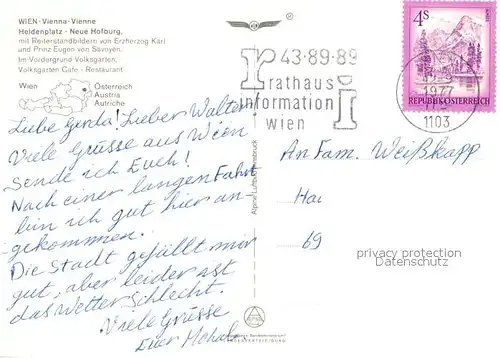 WIEN - Vienna - Vienne
Heldenplatz - Neue Hofburg,
mit Reiterstandbildern von Erzherzog Karl
und Prinz Eugen von Savoyen.
Im Vordergrund Volksgarten;
Volksgarten Cafe - Restaurant
Wien
Österreich
Austria
Autriche
Liebe Gerda! Lieber Walter
Viele Grüsse aus Wien
Sende ich Euch!
Nach einer langen Fahrt
bin ich gut hier an-
gekommen.
Die Stadt gefällt mir
gut, aber leider ist
das Wetter Schlecht.
Viele Grüsse
Euer
®
43·89·89
rathaus
information
wien
i
4S
REPUBLIK ÖSTERREICH
1977
1103
An Fam. Weißkapp
Hai
69
privacy protection
Datenschutz